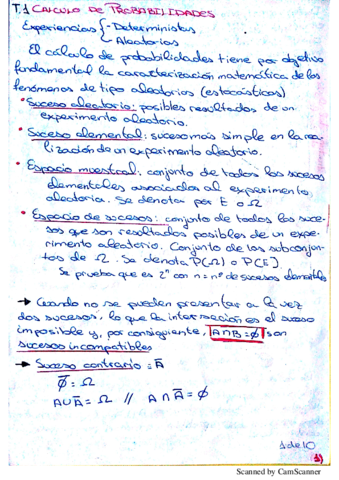 T.1 CALCULO DE PROBABILIDADES
Experiencias { - Deterministas
- Aleatorios
El cálculo de probabilidades tiene por objetivo
fundamental la caracterización matemática de los
fenómenos de tipo aleatorios (estocásticos)
• Suceso aleatorio: posibles resultados de un
experimento aleatorio.
• Suceso elemental: suceso más simple en la rea-
lización de un experimento aleatorio.
• Espacio muestral: conjunto de todos los sucesos
elementales asociados al experimento
aleatorio. Se denota por E o Ω
• Espacio de sucesos: conjunto de todos los suce-
sos que son resultados posibles de un expe-
rimento aleatorio. Conjunto de los subconjun-
tos de Ω. Se denota P(Ω) o P(E)
Se prueba que es 2ⁿ con n = nº de sucesos elementales
→ Cuando no se pueden presentar a la vez
dos sucesos, lo que la intersección es el suceso
imposible y, por consiguiente, A∩B=ϕ son
sucesos incompatibles
→ Suceso contrario = Ā
ϕ̄ = Ω
A∪Ā = Ω // A∩Ā = ϕ
1 de 10
Scanned by CamScanner